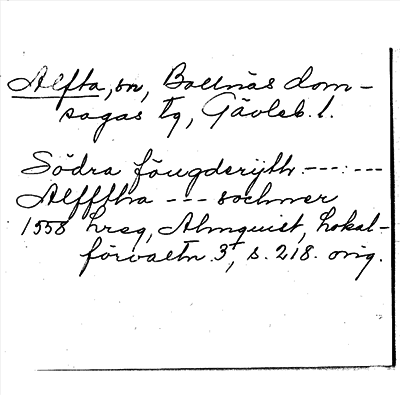 Alfta, sn, Bollnäs dom-
sagas tg, Gävleb. l.
Södra föugderijth ---:---
Alffftha --- sochner
1558 hreg, Almquist, Lokal-
förvaltn. 3, s. 218. orig.